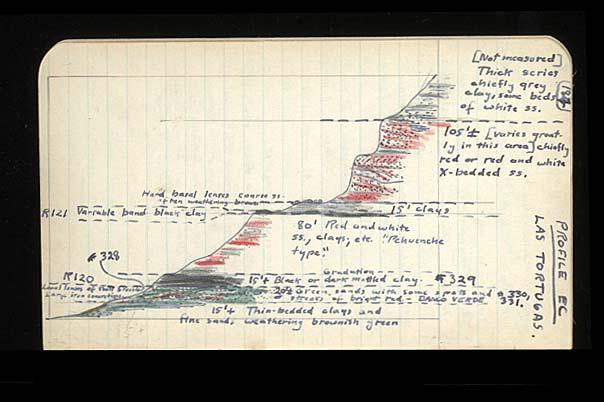 [Not measured]
Thick series
chiefly grey
clay, some beds
of white ss.
105'± [varies great-
ly in this area] chiefly
red or red and white
X-bedded ss.
Hard basal lenses coarse ss.
often weathering brown
R121 Variable band black clay
15' clays
80' Red and white
ss., clays, etc. "Pehuenche
type."
#328
Gradation
R120
15'+ Black or dark mottled clay.
#329
Local lenses of
Large
20'± Green sands with some spots and
streaks of bright red - BANCO VERDE
#330,
331.
15'+ Thin-bedded clays and
fine sand, weathering brownish green
PROFILE EC
LAS TORTUGAS.